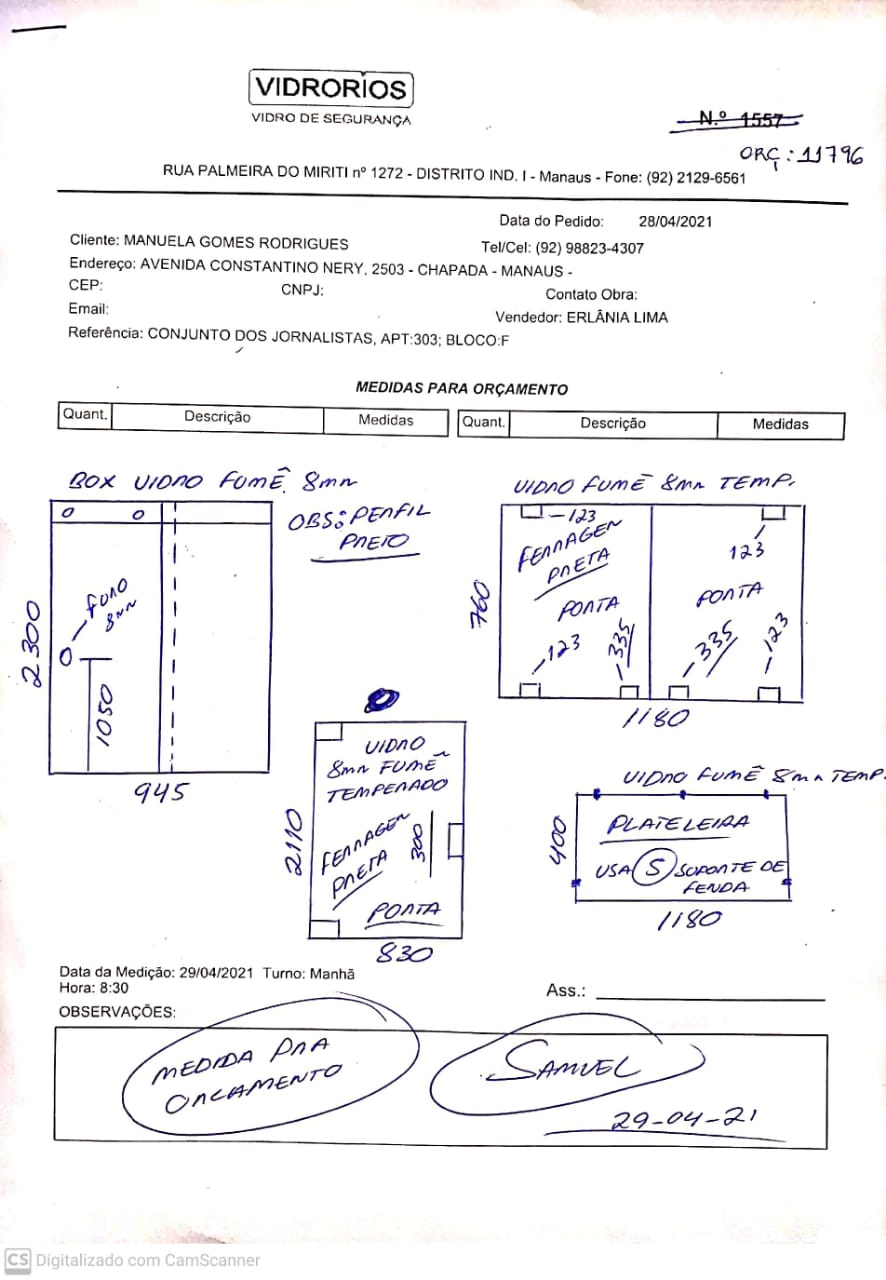 VIDRORIOS
VIDRO DE SEGURANÇA
N.º 1557
ORÇ: 11796
RUA PALMEIRA DO MIRITI nº 1272 - DISTRITO IND. I - Manaus - Fone: (92) 2129-6561
Data do Pedido: 28/04/2021
Cliente: MANUELA GOMES RODRIGUES
Tel/Cel: (92) 98823-4307
Endereço: AVENIDA CONSTANTINO NERY, 2503 - CHAPADA - MANAUS -
CEP: CNPJ: Contato Obra:
Email: Vendedor: ERLÂNIA LIMA
Referência: CONJUNTO DOS JORNALISTAS, APT:303; BLOCO:F
MEDIDAS PARA ORÇAMENTO
Quant. Descrição Medidas Quant. Descrição Medidas
BOX VIDRO FUMÊ 8mm
OBS: PERFIL
PRETO
FURO
8mm
2300
1050
945
VIDRO FUMÊ 8mm TEMP.
123
FERRAGEM
PRETA
123
760
PORTA
PORTA
123
335
335
123
1180
VIDRO
8mm FUMÊ
TEMPERADO
2110
FERRAGEM
PRETA
300
PORTA
830
VIDRO FUMÊ 8mm TEMP.
400
PLATELEIRA
USA 5 SUPORTE DE
FENDA
1180
Data da Medição: 29/04/2021 Turno: Manhã
Hora: 8:30
Ass.:
OBSERVAÇÕES:
MEDIDA PRA
ORCAMENTO
SAMUEL
29-04-21
CS Digitalizado com CamScanner